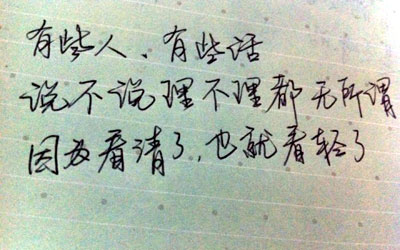 有些人、有些话
说不说理不理都无所谓
因为看清了,也就看轻了